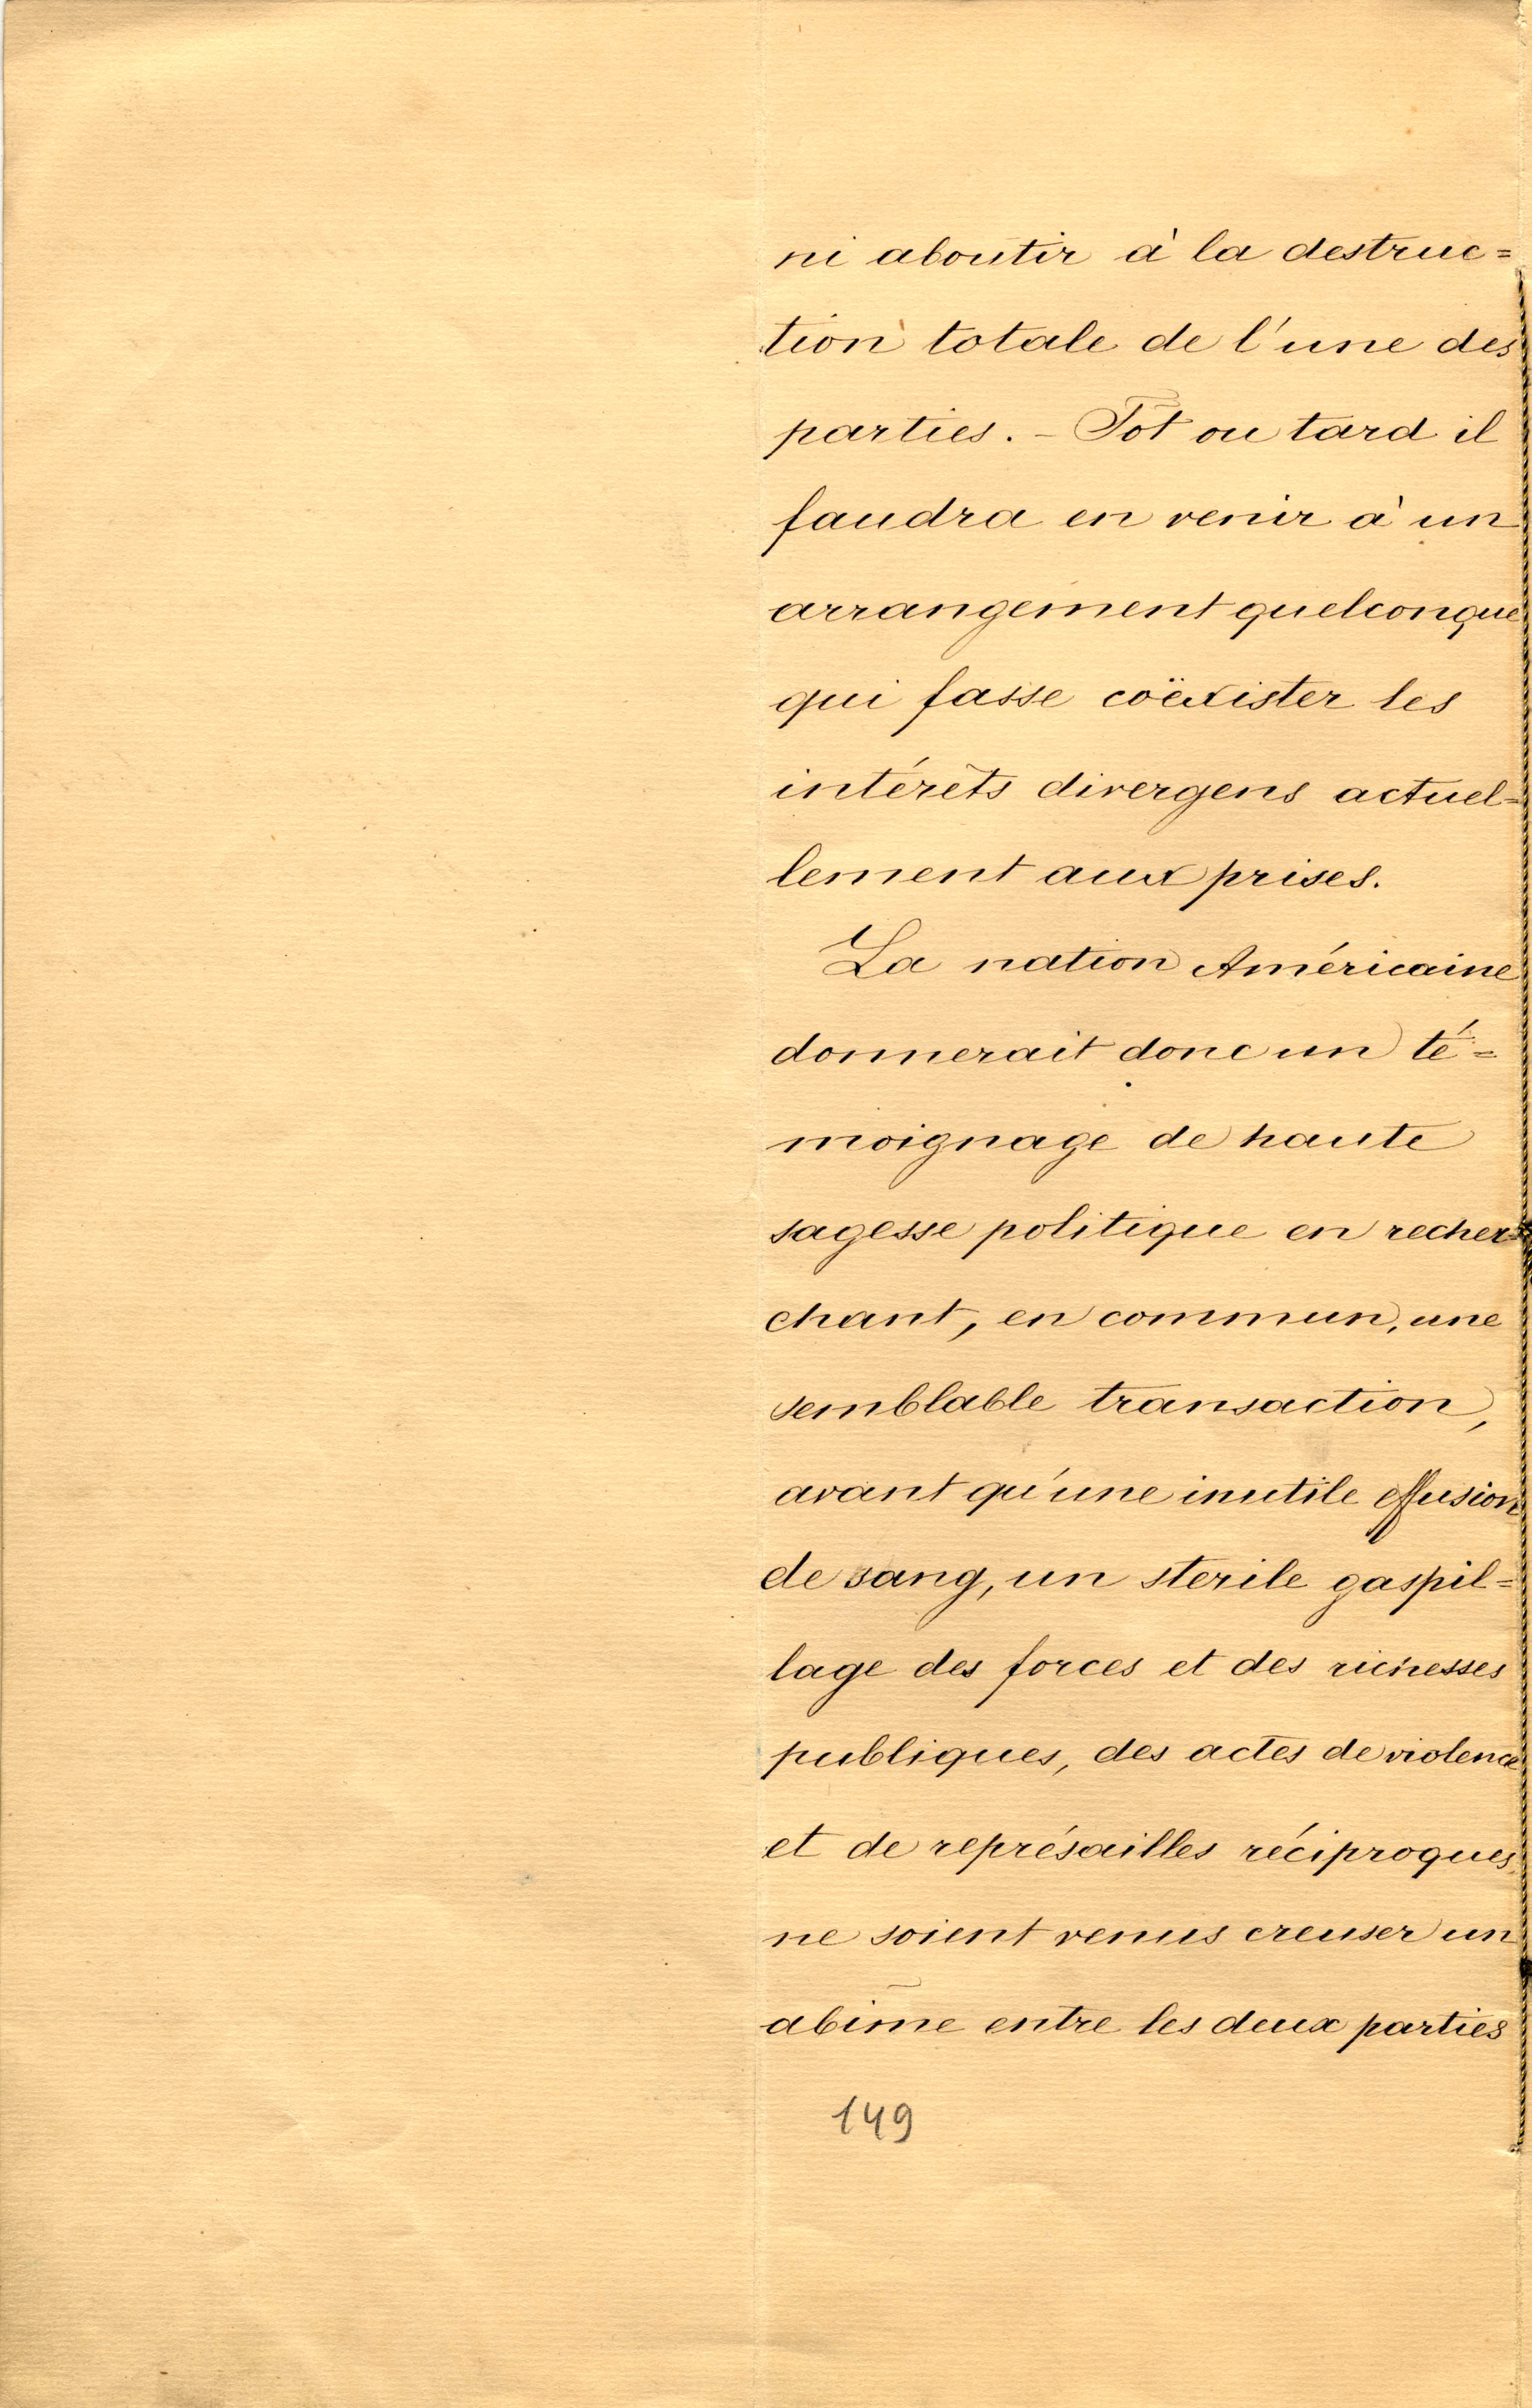 ni aboutir à la destruc=
tion totale de l'une des
parties. - Tôt ou tard il
faudra en venir à un
arrangement quelconque
qui fasse coëxister les
intérêts divergens actuel=
lement aux prises.
La nation Américaine
donnerait donc un té=
moignage de haute
sagesse politique en recher=
chant, en commun, une
semblable transaction,
avant qu'une inutile effusion
de sang, un sterile gaspil=
lage des forces et des richesses
publiques, des actes de violence
et de représailles réciproques
ne soient venus creuser un
abîme entre les deux parties
149